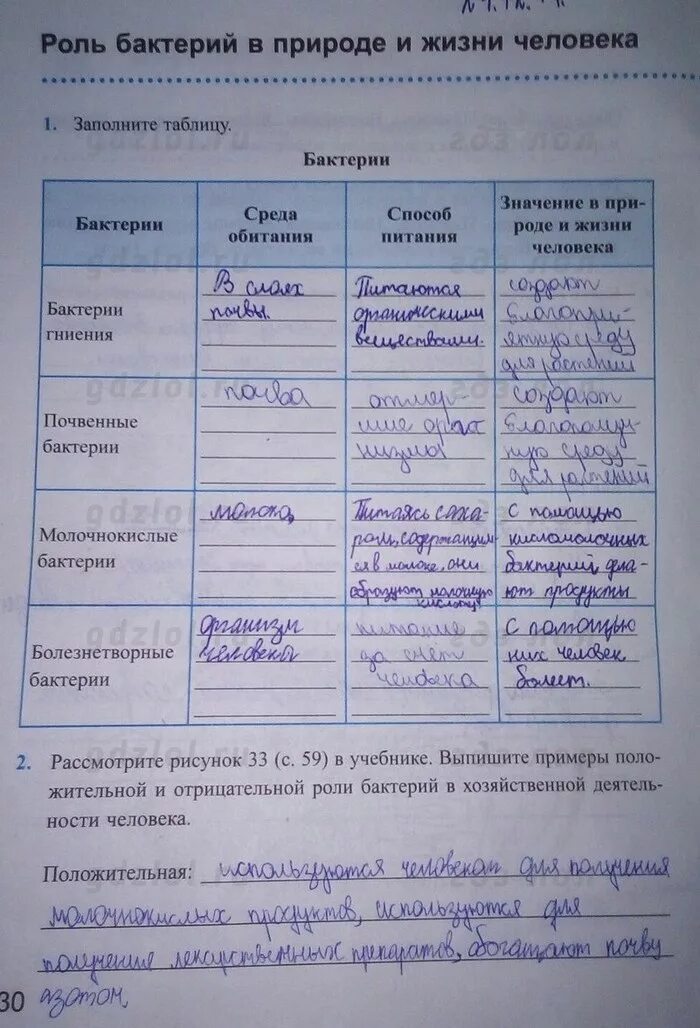 Роль бактерий в природе и жизни человека
1. Заполните таблицу.
Бактерии
Бактерии
Среда
обитания
Способ
питания
Значение в при-
роде и жизни
человека
Бактерии
гниения
В слоях
почвы.
Питаются
органическими
веществами.
создают
благопри-
ятную среду
для растений
Почвенные
бактерии
почва
отмер-
шие орга
низмы
создают
благополуч-
ную среду
для растений
Молочнокислые
бактерии
молоко,
Питаясь саха-
ром, содержащим-
ся в молоке, они
образуют молочную
кислоту
С помощью
кисломолочных
бактерий, дела-
ют продукты
Болезнетворные
бактерии
организм
человека
питание
за счёт
человека
С помощью
них человек
болеет.
2. Рассмотрите рисунок 33 (с. 59) в учебнике. Выпишите примеры поло-
жительной и отрицательной роли бактерий в хозяйственной деятель-
ности человека.
Положительная: используются человеком для получения
молочнокислых продуктов, используются для
получения лекарственных препаратов, обогащают почву
30 азотом.
gdzlol.ru